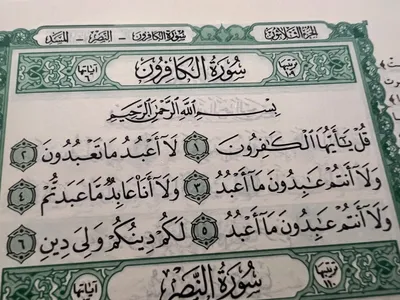 الجزء الثلاثون سورة الكافرون - النصر - المسد
ترتيبها ١٠٩ سُورَةُ الْكَافِرُونَ آياتها ٦
بِسْمِ ٱللَّهِ ٱلرَّحْمَـٰنِ ٱلرَّحِيمِ
قُلْ يَـٰٓأَيُّهَا ٱلْكَـٰفِرُونَ ١ لَآ أَعْبُدُ مَا تَعْبُدُونَ ٢
وَلَآ أَنتُمْ عَـٰبِدُونَ مَآ أَعْبُدُ ٣ وَلَآ أَنَا۠ عَابِدٌ مَّا عَبَدتُّمْ ٤
وَلَآ أَنتُمْ عَـٰبِدُونَ مَآ أَعْبُدُ ٥ لَكُمْ دِينُكُمْ وَلِيَ دِينِ ٦
ترتيبها ١١٠ سُورَةُ النَّصْرِ آياتها